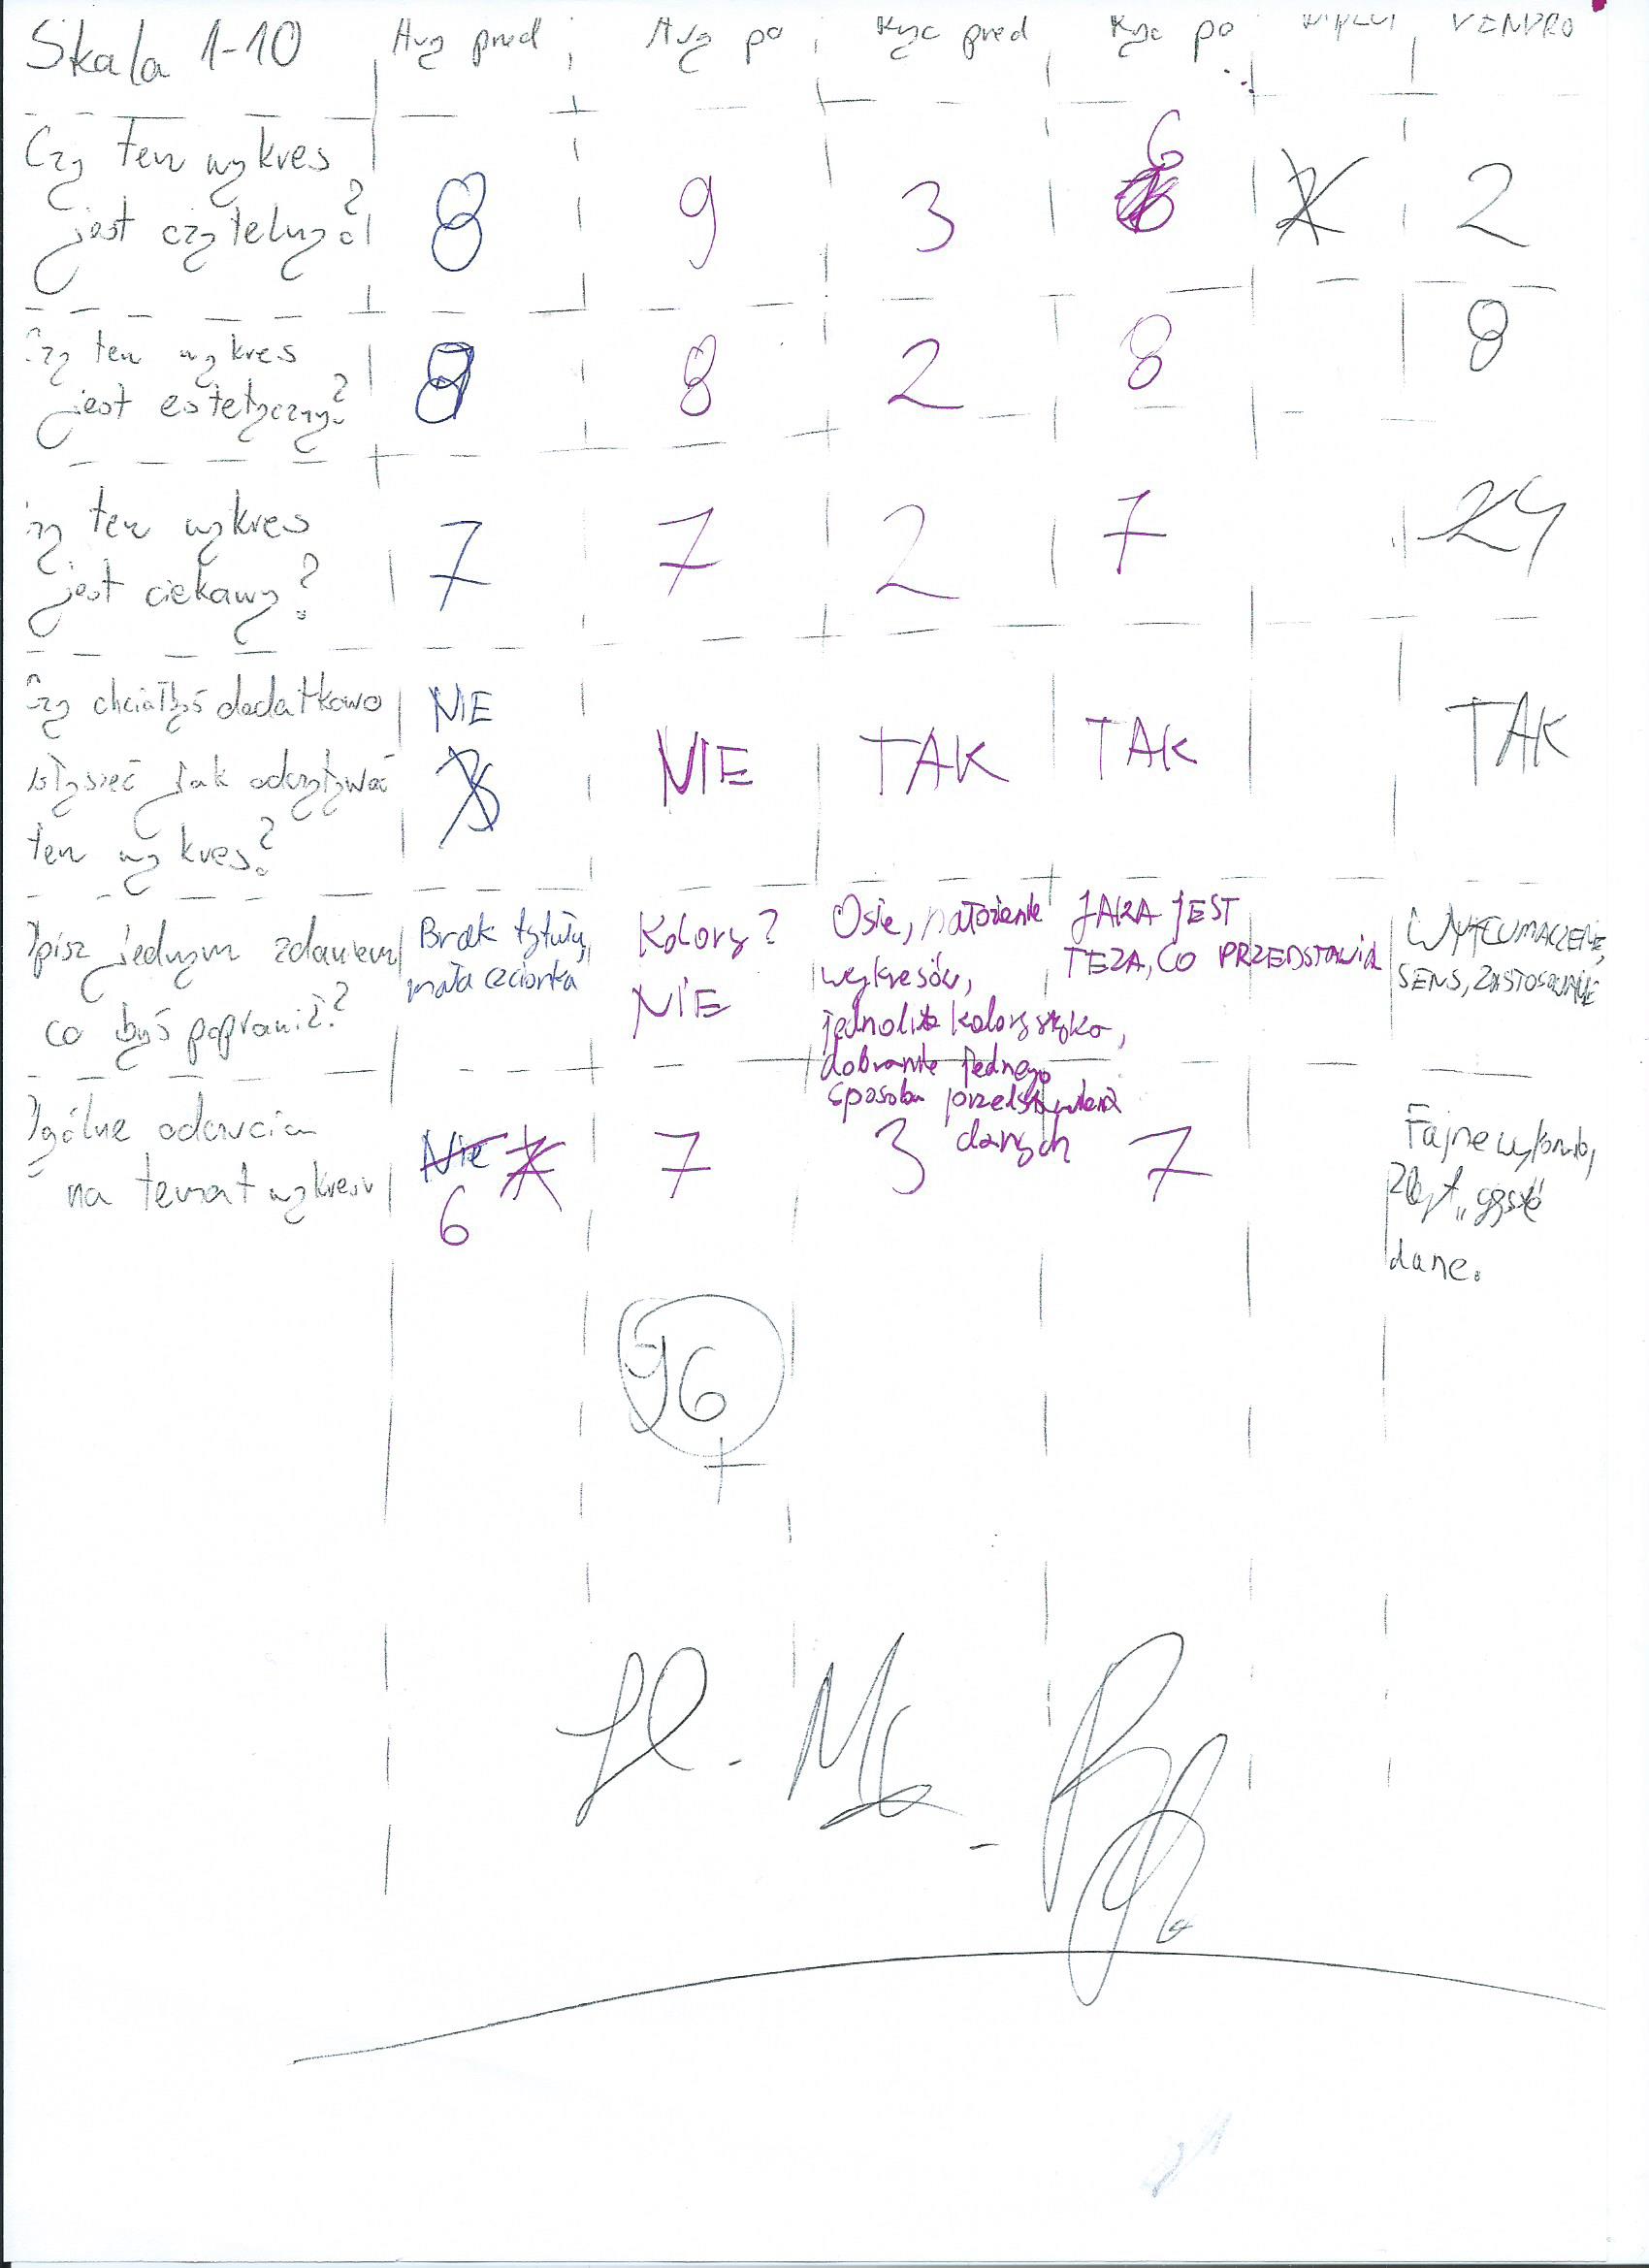 Skala 1-10 Avg pred Avg po Kyc pred Kyc po
Czy ten wykres
jest czytelny? 8 9 3 6 2
Czy ten wykres
jest estetyczny? 8 8 2 8 8
Czy ten wykres
jest ciekawy? 7 7 2 7 4
Czy chciałbyś dodatkowo NIE
słyszeć jak odczytywać NIE TAK TAK TAK
ten wykres?
Opisz jednym zdaniem
co byś poprawił?
Brak tytułu,
mała czcionka
Kolory?
NIE
Osie, nałożenie
wykresów,
jednolita kolorystyka,
dobranie jednego
sposobu przedstawienia
danych
JAKA JEST
TEZA, CO PRZEDSTAWIA
WYTŁUMACZENIE,
SENS, ZASTOSOWANIE
Ogólne odczucia
na temat wykresu
Nie
6 7 3 7
Fajne
dane.
96
+